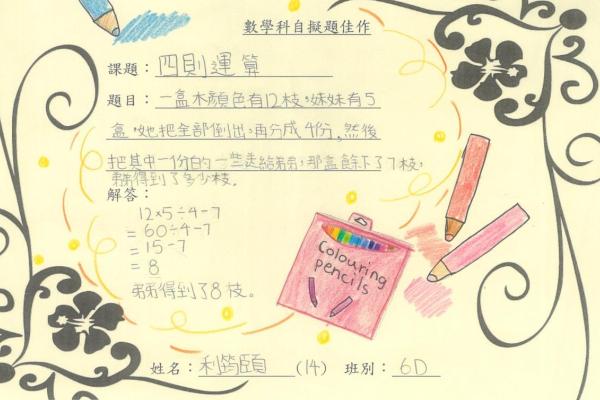 數學科自擬題佳作
課題：四則運算
題目：一盒木顏色有12枝，妹妹有5
盒，她把全部倒出，再分成4份，然後
把其中一份的一些送給弟弟，那盒餘下了7枝，
弟弟得到了多少枝。
解答：
12×5÷4-7
=60÷4-7
=15-7
=8
弟弟得到了8枝。
Colouring
pencils
姓名：利筠頤 (14) 班別：6D